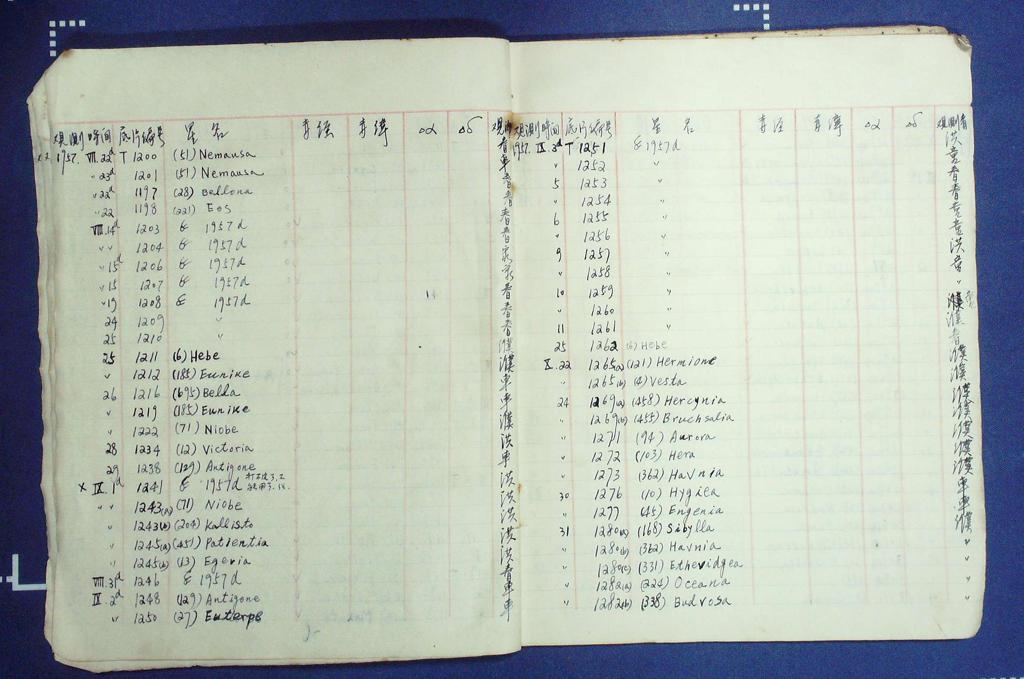 观测时间 底片编号 星名 赤经 赤纬 Δα Δδ 观测者
1957. VIII 22d T 1200 (51) Nemausa 春
〃23d 1201 (51) Nemausa 車
〃22d 1197 (28) Bellona 春
〃22 1198 (221) Eos 春
VIII.14d 1203 & 1957d
〃〃 1204 & 1957d
〃15d 1206 & 1957d
〃15 1207 & 1957d
〃19 1208 & 1957d 春
24 1209 〃 春
25 1210 〃 春
25 1211 (6) Hebe 濮
〃 1212 (185) Eunike 濮
26 1216 (695) Bella 車
〃 1219 (185) Eunike 車
〃 1222 (71) Niobe 濮
28 1234 (12) Victoria 洪
29 1238 (129) Antigone 車
x IX.1d 1241 & 1957d 洪
〃〃 1243(a) (71) Niobe 洪
〃 1243(b) (204) Kallisto 洪
〃 1245(a) (451) Patientia 洪
〃 1245(b) (13) Egeria 洪
VIII.31d 1246 & 1957d 春
IX.2d 1248 (129) Antigone 車
〃 1250 (27) Euterpe 車
观测时间 底片编号 星名 赤经 赤纬 Δα Δδ 观测者
1957. IX.3d T 1251 & 1957d 洪
〃 1252 〃
5 1253 〃 春
〃 1254 〃 春
6 1255 〃
〃 1256 〃
9 1257 〃 洪
〃 1258 〃
10 1259 〃 〃
〃 1260 〃 濮
11 1261 〃 濮
25 1262 (6) Hebe 春
X.22 1265(a) (121) Hermione 濮
〃 1265(b) (4) Vesta 濮
24 1269(a) (458) Hercynia 濮
〃 1269(b) (455) Bruchsalia 濮
〃 1271 (94) Aurora 濮
〃 1272 (103) Hera 濮
〃 1273 (362) Havnia 濮
30 1276 (10) Hygiea 車
〃 1277 (45) Engenia 車
31 1280(a) (168) Sibylla 濮
〃 1280(b) (362) Havnia 〃
〃 1280(c) (331) Etheridgea 〃
〃 1282(a) (224) Oceana 〃
〃 1282(b) (338) Budrosa 〃